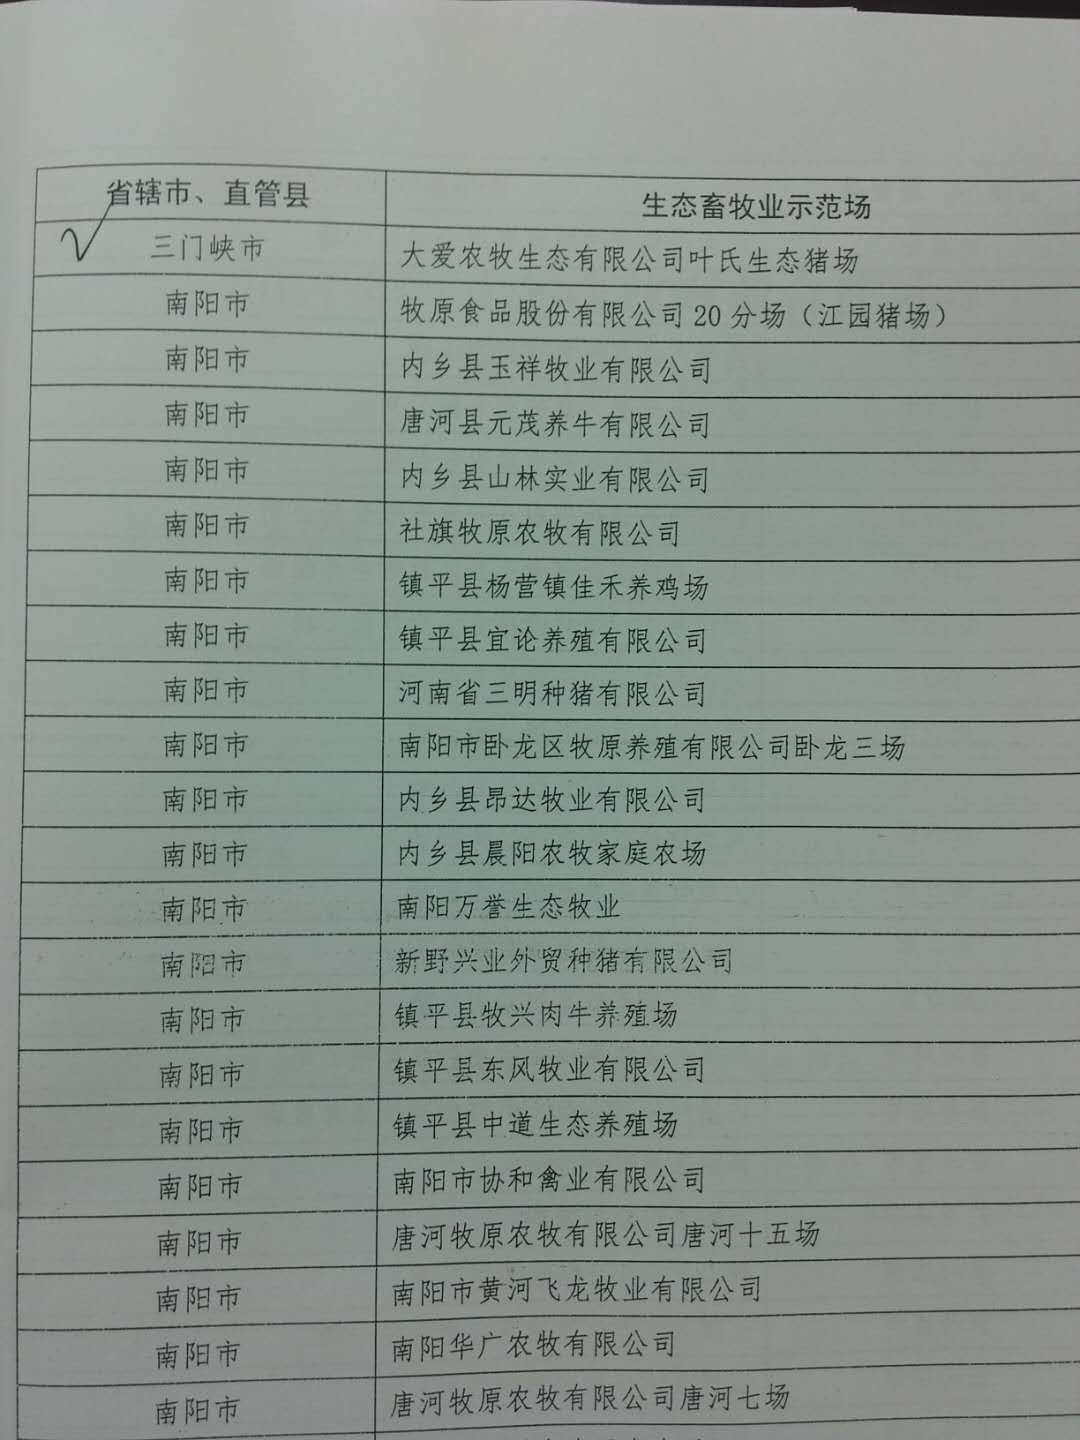 省辖市、直管县 生态畜牧业示范场
三门峡市 大爱农牧生态有限公司叶氏生态猪场
南阳市 牧原食品股份有限公司20分场（江园猪场）
南阳市 内乡县玉祥牧业有限公司
南阳市 唐河县元茂养牛有限公司
南阳市 内乡县山林实业有限公司
南阳市 社旗牧原农牧有限公司
南阳市 镇平县杨营镇佳禾养鸡场
南阳市 镇平县宜论养殖有限公司
南阳市 河南省三明种猪有限公司
南阳市 南阳市卧龙区牧原养殖有限公司卧龙三场
南阳市 内乡县昂达牧业有限公司
南阳市 内乡县晨阳农牧家庭农场
南阳市 南阳万誉生态牧业
南阳市 新野兴业外贸种猪有限公司
南阳市 镇平县牧兴肉牛养殖场
南阳市 镇平县东风牧业有限公司
南阳市 镇平县中道生态养殖场
南阳市 南阳市协和禽业有限公司
南阳市 唐河牧原农牧有限公司唐河十五场
南阳市 南阳市黄河飞龙牧业有限公司
南阳市 南阳华广农牧有限公司
南阳市 唐河牧原农牧有限公司唐河七场